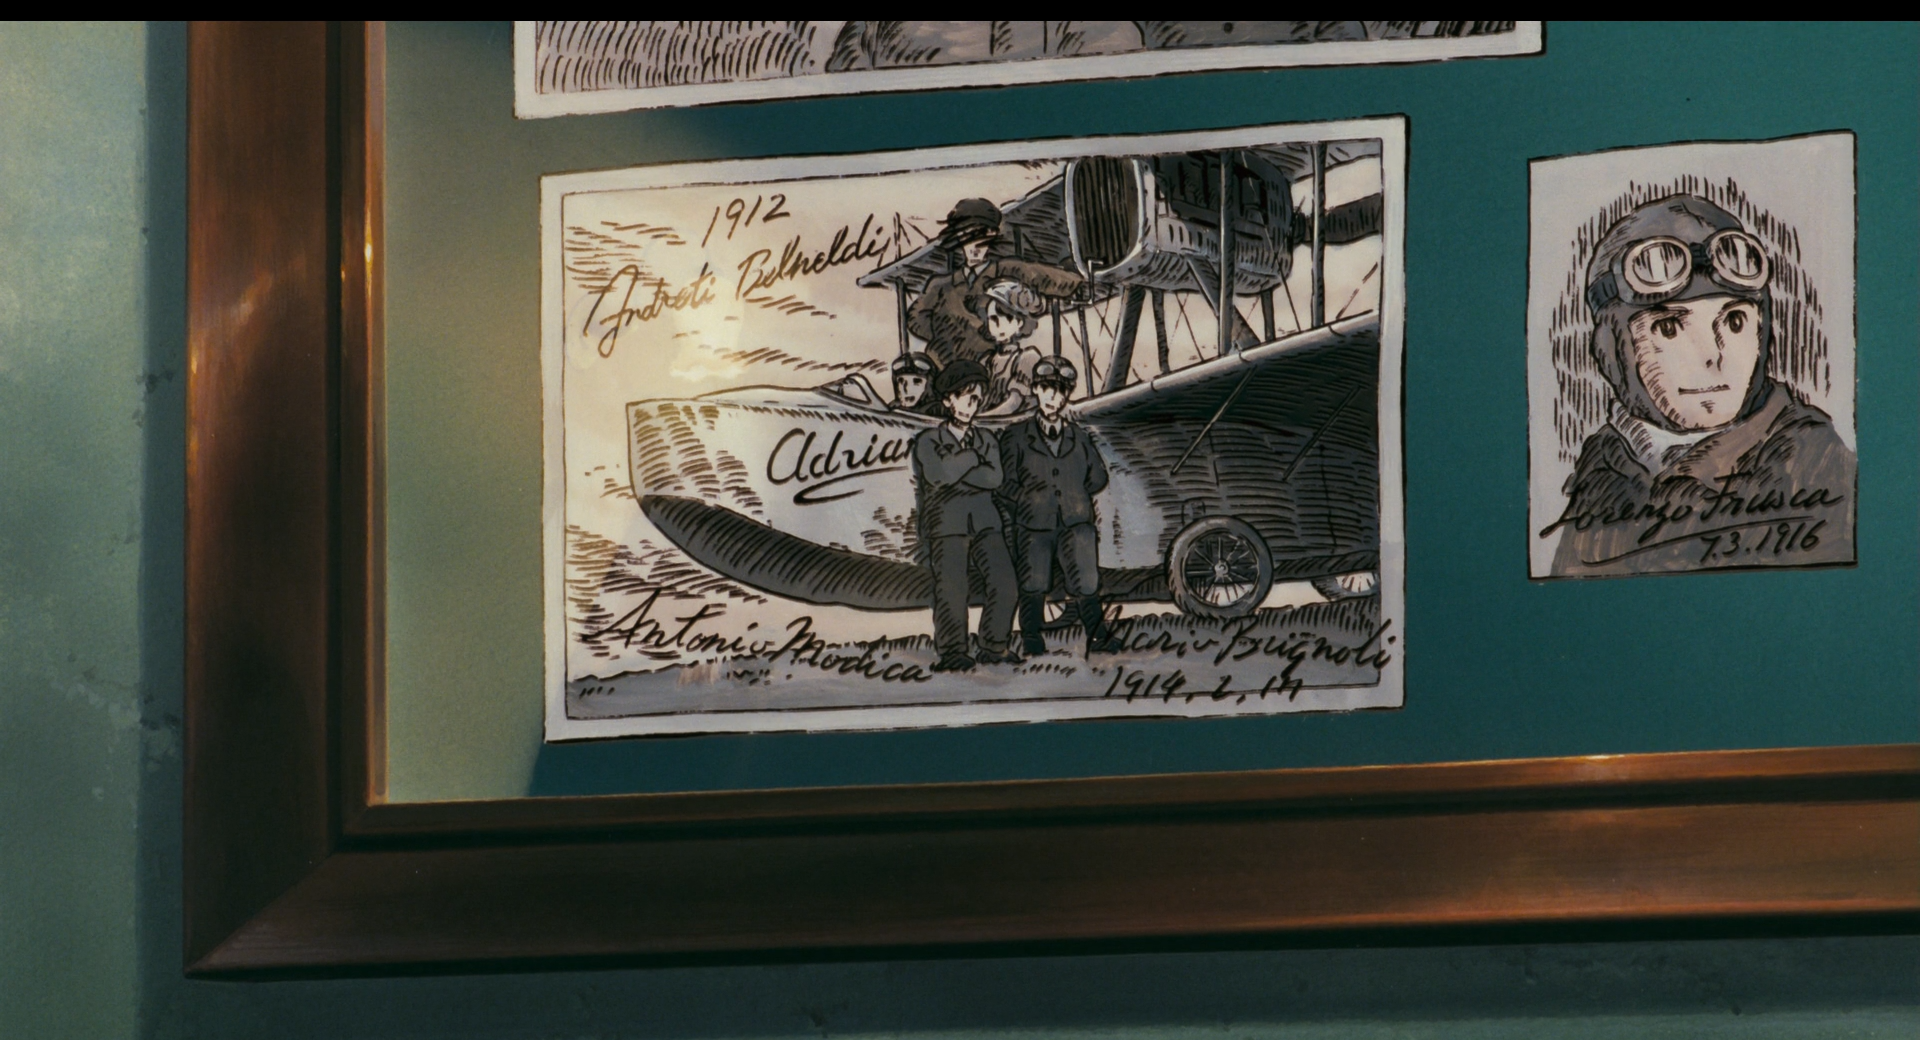 1912
Andreti
Adrian
Antonio Modica
Mario Brignoli
1914. 2.
Lorenzo Frusca
7.3.1916